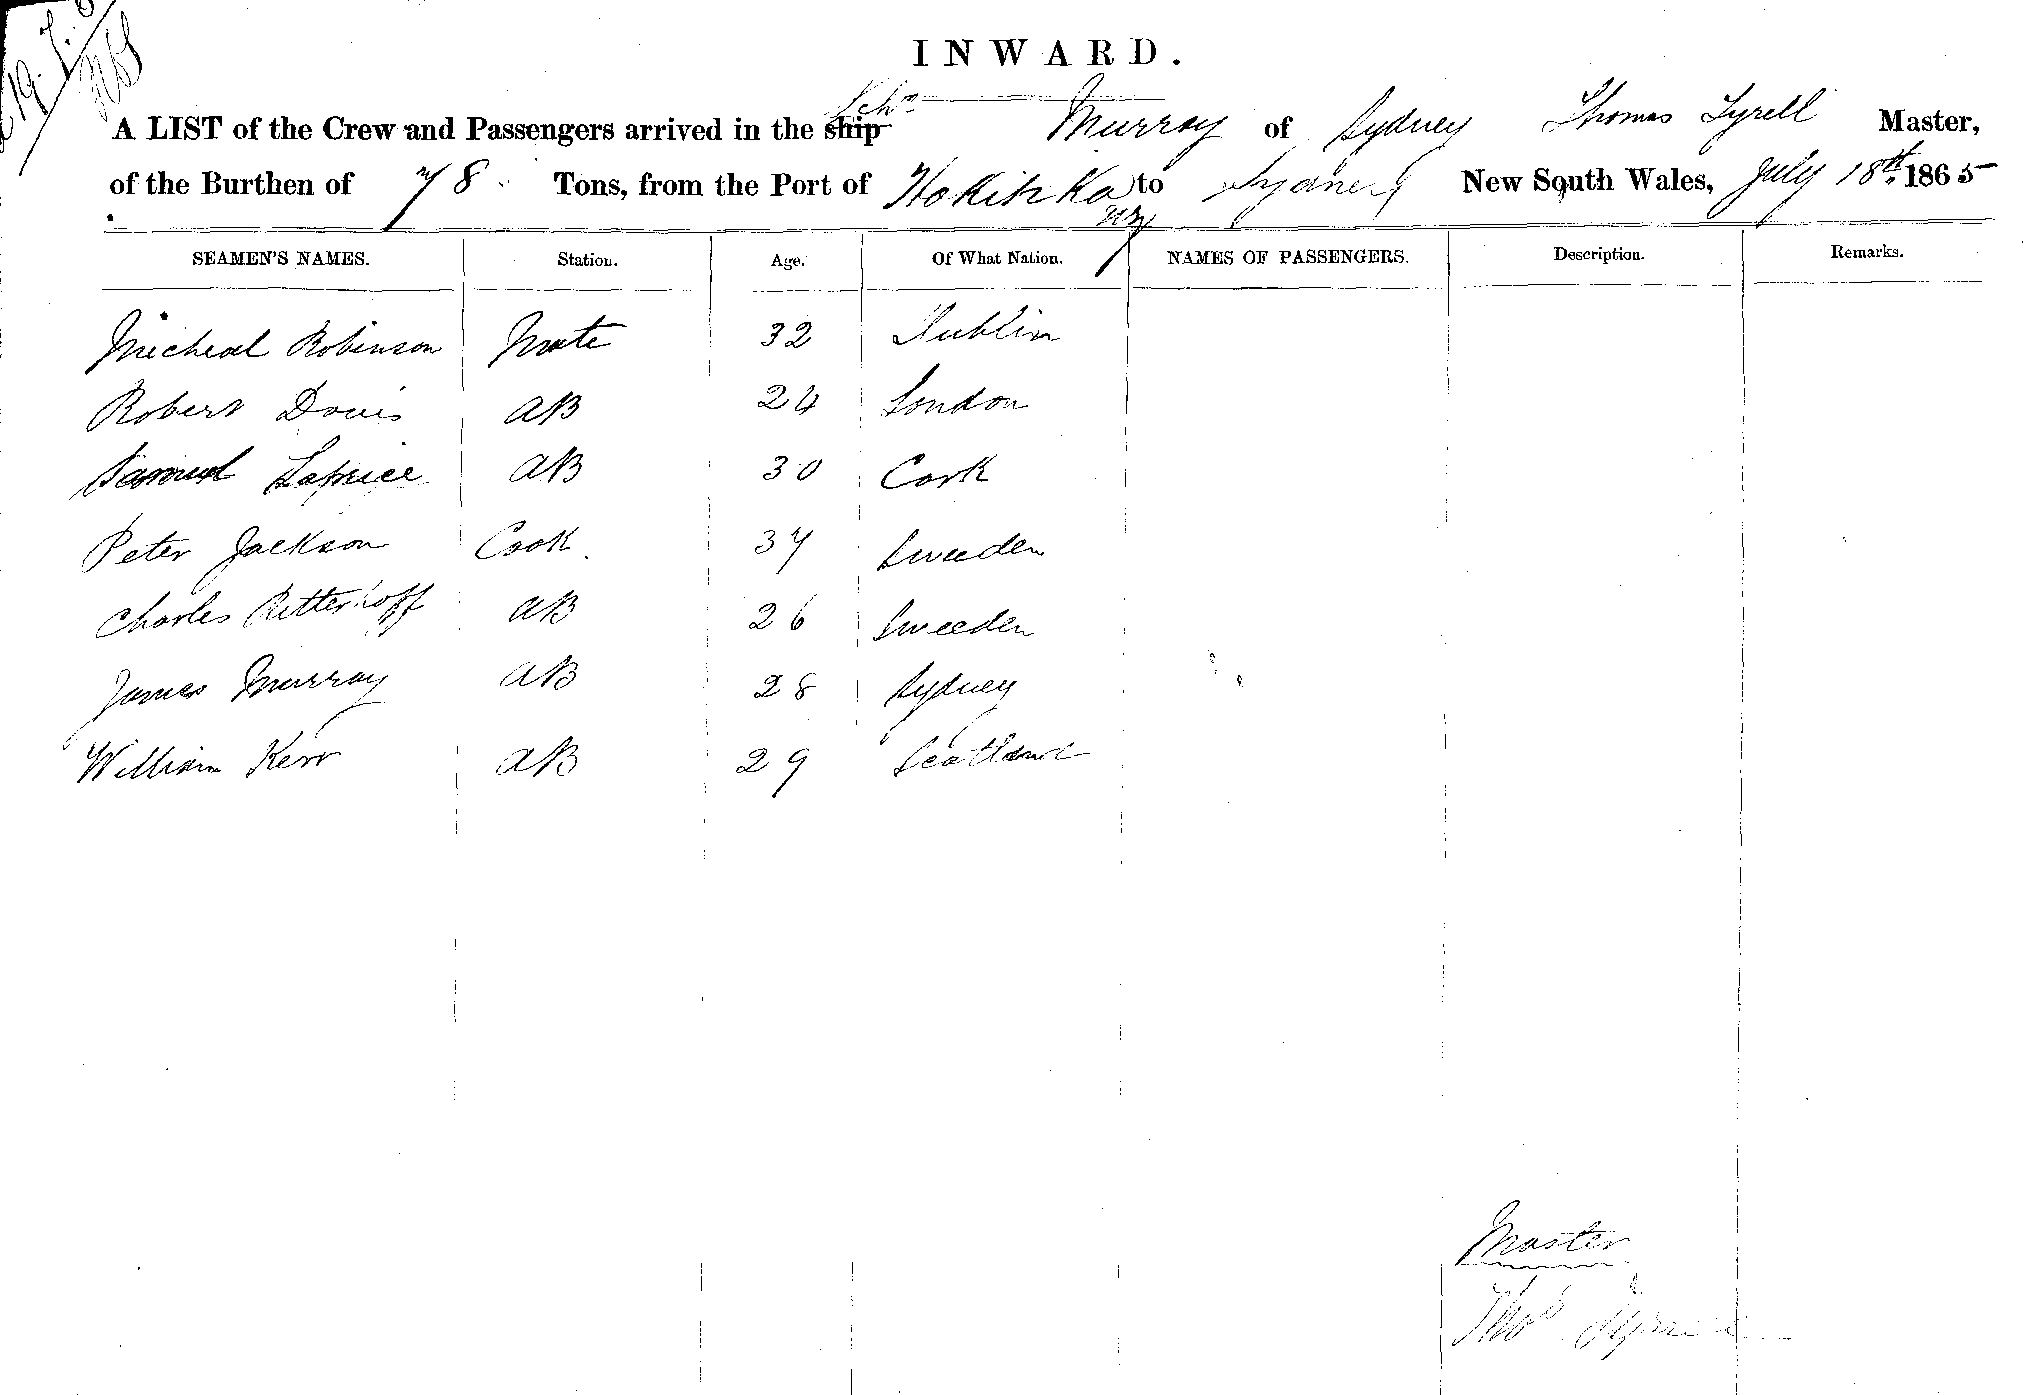 INWARD.
A LIST of the Crew and Passengers arrived in the ship Schr Murray of Sydney Thomas Tyrell Master,
of the Burthen of 78 Tons, from the Port of Hokitika NZ to Sydney New South Wales, July 18th 1865
SEAMEN'S NAMES. Station. Age. Of What Nation. NAMES OF PASSENGERS. Description. Remarks.
Micheal Robinson Mate 32 Dublin
Robert Davis AB 24 London
Samuel Laprice AB 30 Cork
Peter Jackson Cook 37 Sweeden
Charles Ritterhoff AB 26 Sweeden
James Murray AB 28 Sydney
William Kerr AB 29 Scotland
Master
Thos Tyrrell